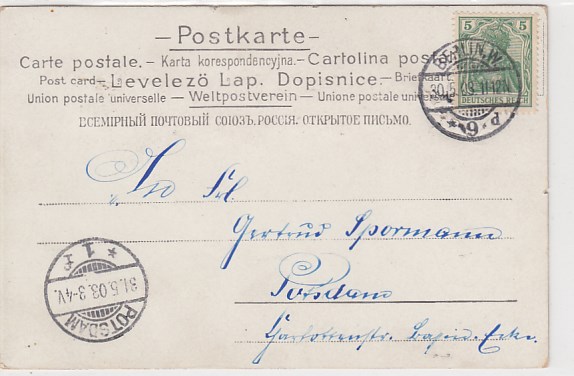 — Postkarte —
Carte postale. — Karta korespondencyjna. — Cartolina post
Post card — Levelező Lap. Dopisnice. — Briefkaart.
Union postale universelle — Weltpostverein — Unione postale univers
ВСЕМІРНЫЙ ПОЧТОВЫЙ СОЮЗЪ, РОССІЯ. ОТКРЫТОЕ ПИСЬМО.
5 5
DEUTSCHES REICH
BERLIN. W.
30.5.03. 11-12V.
* 9 P
An Frl.
Gertrud Spormann
Potsdam
POTSDAM
31.5.03. 3-4V.
* 1 f